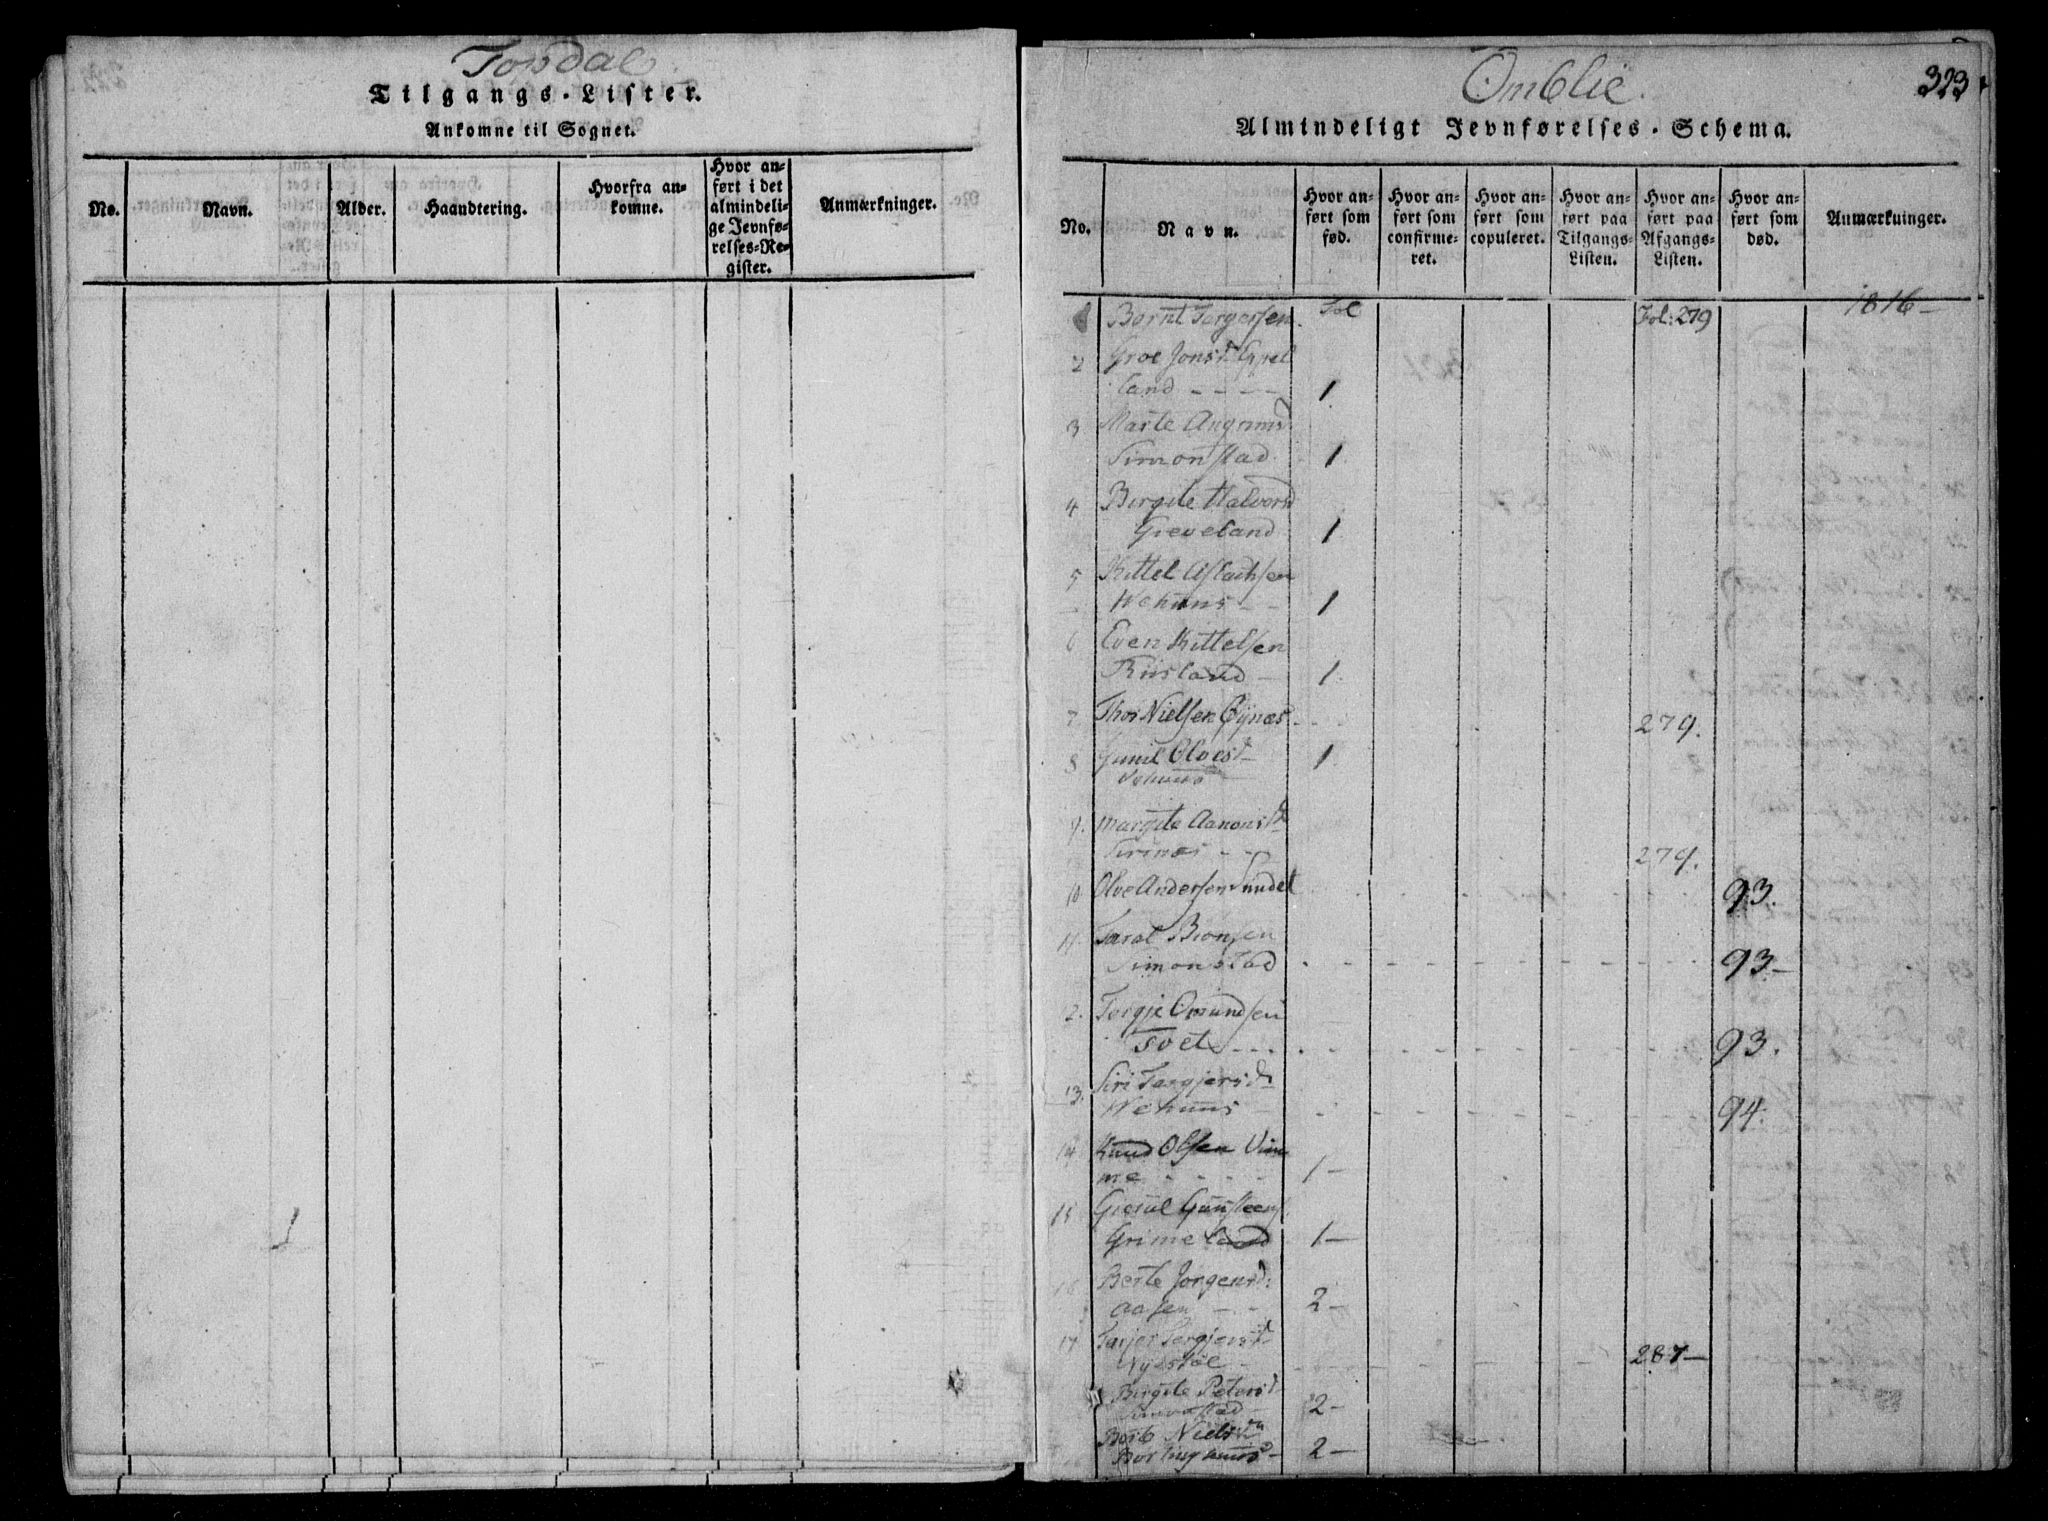 Topdal
Tilgangs-Lister.
Ankomne til Sognet.
No.
Navn.
Alder.
Haandtering.
Hvorfra an-
komne.
Hvor an-
ført i det
almindeli-
ge Jevnfø-
relses-Re-
gister.
Anmærkninger.
Omblie.
323
Almindeligt Jevnførelses-Schema.
No.
Navn.
Hvor an-
ført som
fød.
Hvor an-
ført som
confirme-
ret.
Hvor an-
ført som
copuleret.
Hvor an-
ført paa
Tilgangs-
Listen.
Hvor an-
ført paa
Afgangs-
Listen.
Hvor an-
ført som
død.
Anmærkninger.
Bernt Torgersen Fol Fol: 279 1816-
2 Groe Jonsd. Eppel
land - - - - 1
3 Marte
Simonstad 1
4 Birgite Halvorsd
Greveland 1
5 Kittel Aslachsen
Wehuus - - 1
6 Even Kittelsen
Risland - 1
7 Thor Nielsen Øynæs 279.
8 Gunil Olvesd 1
9. Margite Aanonsd
279.
10 Olve Andersen Sundet 93.
11. Taral Bionsen
Simonstad 93-
2. Tergje Omundsen
Tvet 93.
13. Siri Targjersd
Wehuus 94.
14 Knud Olsen Vim
me - - - - 1-
15 Gunsteens
Grimeland 1-
16 Berte Jorgensd:
Aasen - - 2-
17 Tarjer Tergjersd
Nystøl 287-
Birgite Petersd
Simonstad 2-
Nielsd
2-